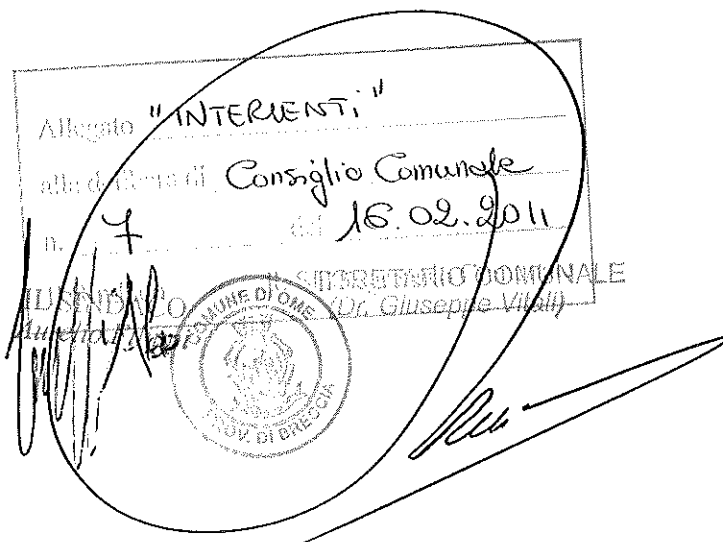 Allegato "INTERVENTI"
alla delibera di Consiglio Comunale
n. 7 del 16.02.2011
IL SINDACO
IL SEGRETARIO COMUNALE
(Dr. Giuseppe Vitali)
COMUNE DI OME
PROV. DI BRESCIA